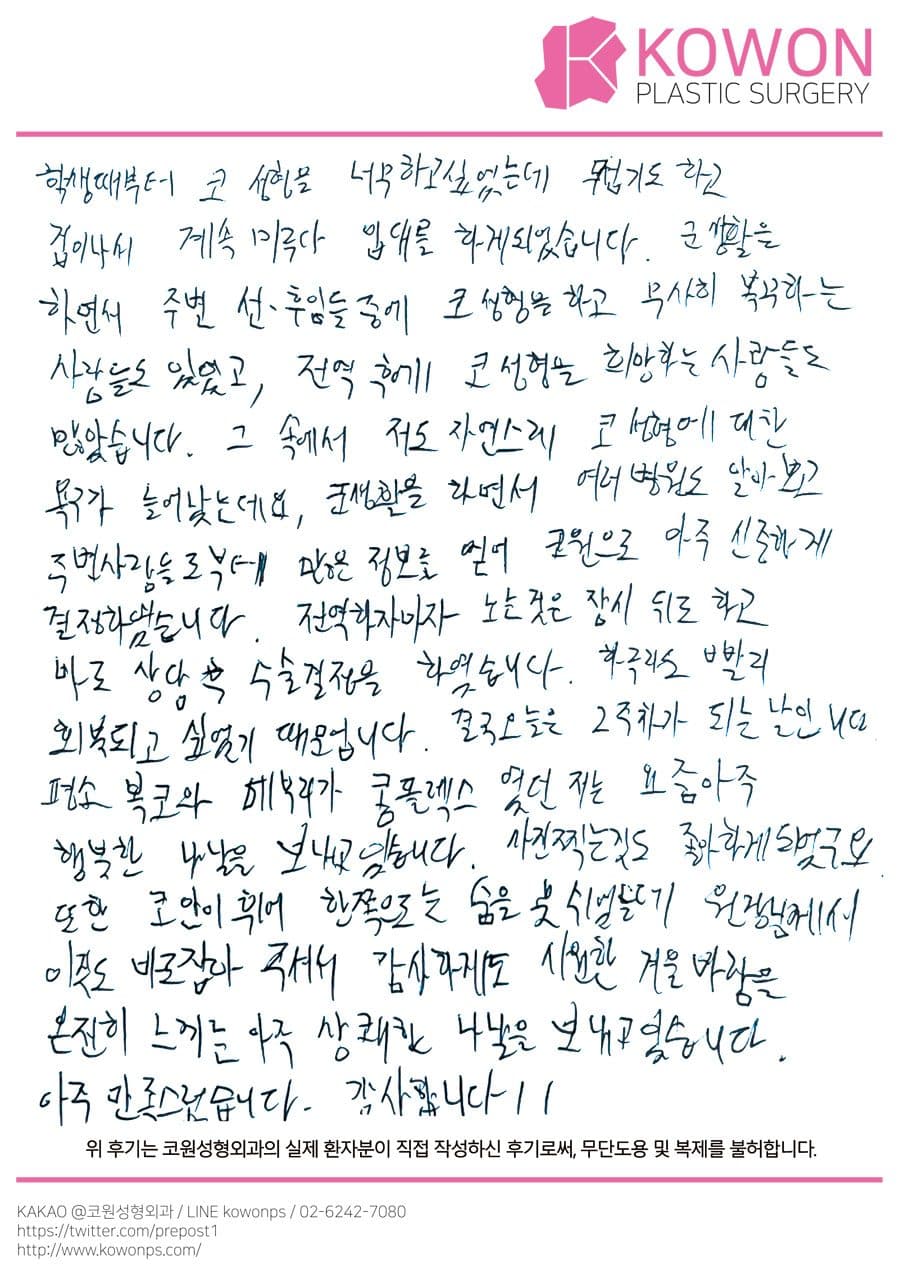 KOWON
PLASTIC SURGERY
학생때부터 코 성형을 너무하고싶었는데 무섭기도 하고
겁이나서 계속 미루다 입대를 하게되었습니다. 군생활을
하면서 주변 선·후임들중에 코성형을하고 무사히 복귀하는
사람들도 있었고, 전역 후에 코성형을 희망하는 사람들도
많았습니다. 그 속에서 저도 자연스레 코 성형에 대한
욕구가 늘어났는데요, 군생활을 하면서 여러병원도 알아보고
주변사람들로부터 많은 정보를 얻어 코원으로 아주 신중하게
결정하였습니다. 전역하자마자 노는것은 잠시 뒤로 하고
바로 상담 후 수술결정을 하였습니다. 하루라도 빨리
회복되고 싶었기 때문입니다. 결국오늘은 2주차가 되는 날입니다.
평소 복코와 매부리가 콤플렉스 였던 저는 요즘아주
행복한 나날을 보내고 있습니다. 사진찍는것도 좋아하게되었구요.
또한 코안이 휘어 한쪽으로는 숨을 못 쉬었는데 원장님께서
이것도 바로잡아 주셔서 감사하게도 시원한 겨울바람을
온전히 느끼는 아주 상쾌한 나날을 보내고있습니다.
아주 만족스럽습니다. 감사합니다!!
위 후기는 코원성형외과의 실제 환자분이 직접 작성하신 후기로써, 무단도용 및 복제를 불허합니다.
KAKAO @코원성형외과 / LINE kowonps / 02-6242-7080
https://twitter.com/prepost1
http://www.kowonps.com/